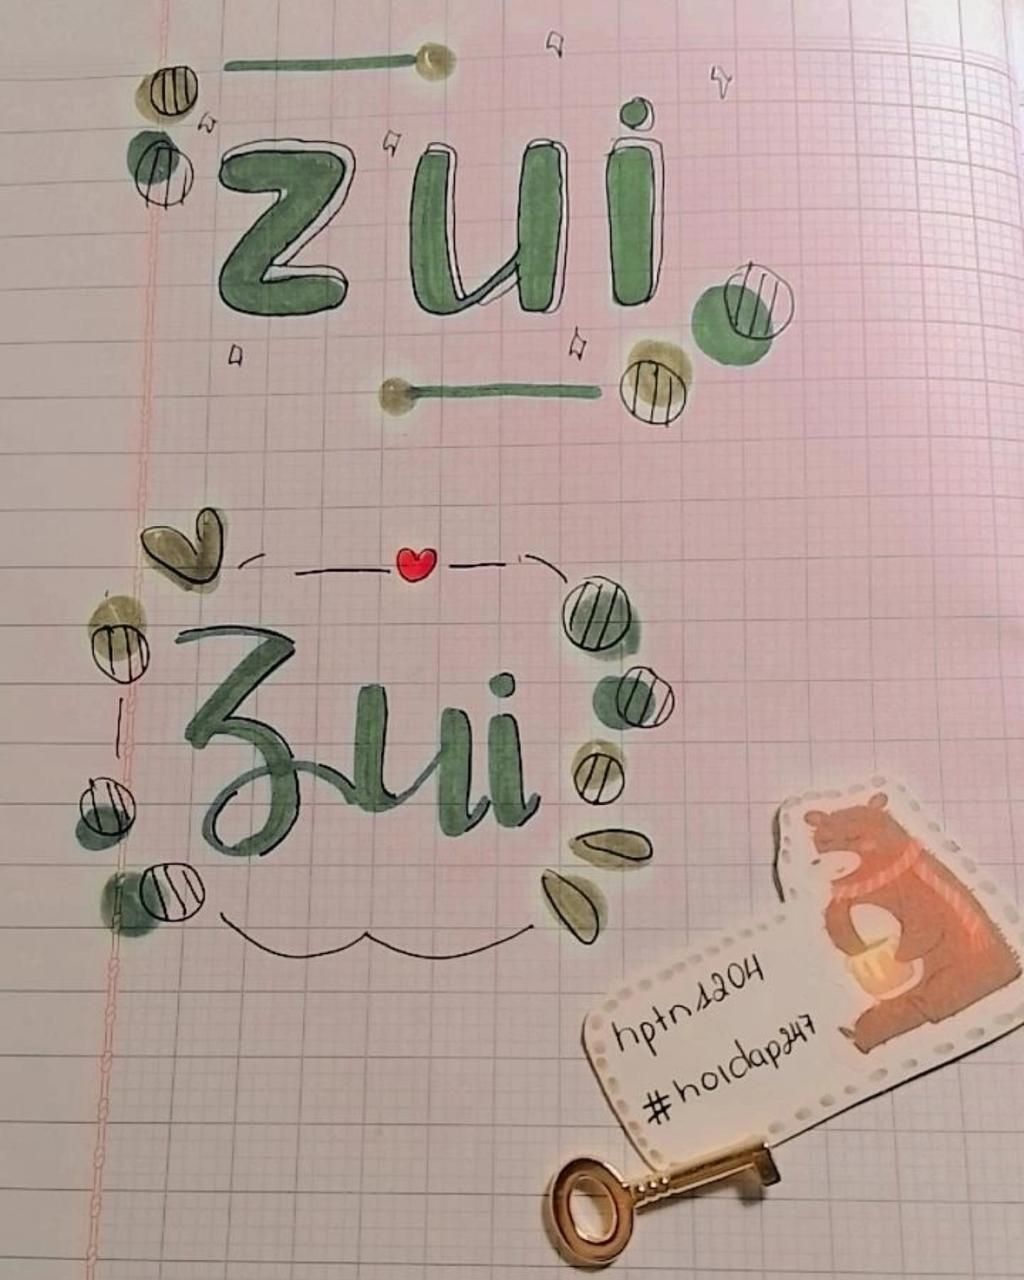 zui
Zui
hptn1204
#hoidap247